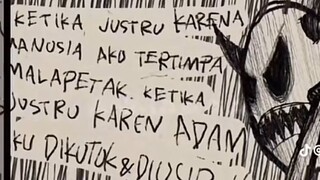 KETIKA JUSTRU KARENA
MANUSIA AKO TERTIMPA
MALAPETAK. KETIKA
JUSTRU KAREN ADAM
KU DIKUTUK &